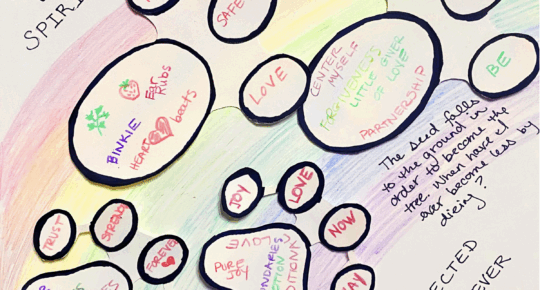 SPIRI
SAFE
LOVE
CENTER
MYSELF
FORGIVENESS
LITTLE GIVER
OF LOVE
PARTNERSHIP
BE
Ear
Rubs
BINKIE
HEART beats
The seed falls
to the ground in
order to become the
tree. When have I
ever become less by
dieing?
JOY
LOVE
TRUST
STRONG
FOREVER
NOW
LOVE
PURE
JOY
UNDARIES
CTION
DITIONAL
WAY
ECTED
EVER